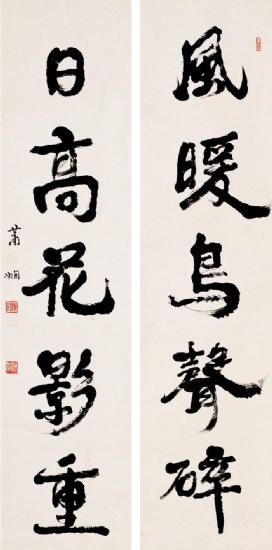 風暖鳥聲碎
日高花影重
蕭嫻